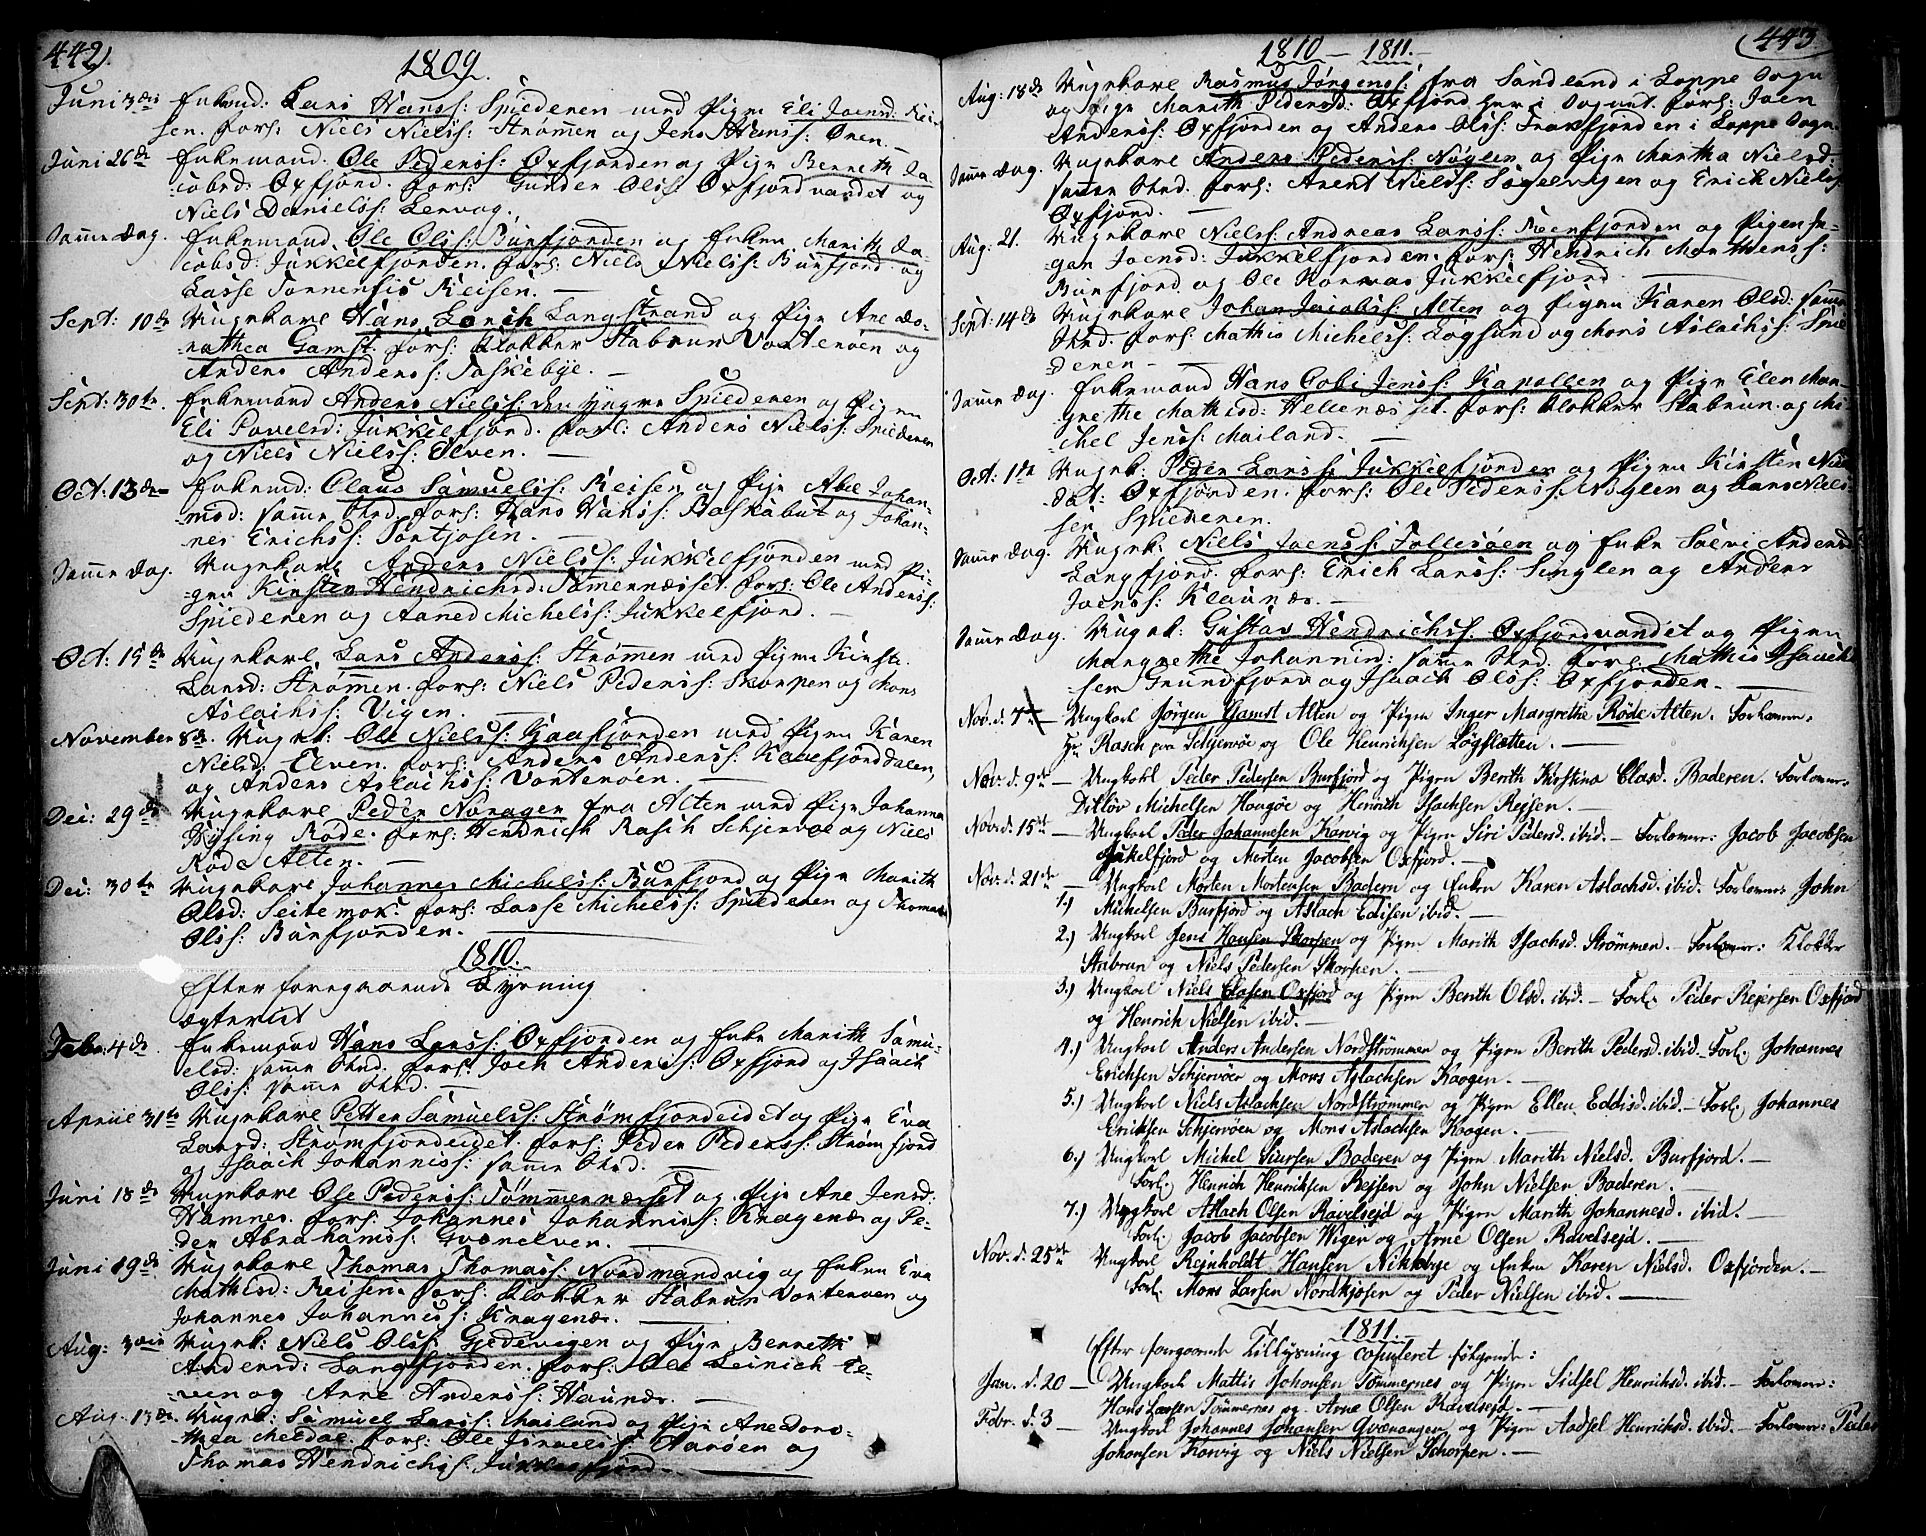 442.
1809.
Juni 3die Enkemd: Lars Hanss: Spilderen med Pige Eli Joensd: Rei-
sen. fors: Niels Nielss: Strømen og Jens Hanss: Øren.
Juni 26de Enkemand. Ole Pederss: Oxfjorden og Pige Berreth Ja-
cobsd: Oxfjord. fors: Gunder Olss: Oxfjordvandet og
Niels Danielss: Lervog.
Same dag. Enkemand. Ole Olss: Burfjorden og Enken Marith Ja-
cobsd: Jukkelfjorden. fors: Niels Nielss: Burfjord og
Lasse Tornensis Reisen.
Sept: 10de Ungekarl Hans Lorch Langstrand og Pige Ane Do-
rathea Gamst. fors: Klokker Stabrun Vorterøen og
Anders Anderss: Taskebye.
Sept: 30te. Enkemand Anders Nielss: den yngre Spilderen og Pigen
Eli Povelsd: Jukkelfjord. fors: Anders Nielss: Spilderen
og Niels Nielss: Elven.
Oct: 13de Enkemd: Claus Samuelss: Reisen og Pige Abel Johan-
nesd: same Sted. fors: Hans Hanss: Baskabut og Johan-
nes Erichss: Sortjosen.
Same dag. Ungekarl Anders Nielss: Jukkelfjorden med Pi-
gen Kirsten Hendrichsd: Tømernæsset. fors: Ole Anderss:
Spilderen og Aaned Michelss: Jukkelfjord.
Oct: 15de Ungekarl. Lars Anderss: Strømen med Pigen Kirsti
Larsd: Strømen. fors: Niels Pederss: Skorpen og Mons
Aslachss: Vigen.
November 8de. Ungk: Ole Nielss: Kaafjorden med Pigen Karen
Nielsd: Elven. fors: Anders Anderss: Kaaefjorddalen,
og Anders Aslachss: Vorterøen.
Dec: 29de Ungekarl Peder Noragen fra Alten med Pige Johanna
Hysing Røde. fors: Hendrich Rasch Schjervøe og Niels
Røde Alten.
Dec: 30te Ungekarl Johannes Michelss: Burfjord og Pige Marith
Olsd: Seitemok. fors: Lasse Michelss: Spilderen og Thomas
Olss: Burfjorden.
1810.
Efter foregaaende Lysning
ægteviet
Febr: 4de Enkemand Hans Larss: Oxfjorden og Enke Marith Samu-
elsd: same Sted. fors: Joen Anderss: Oxfjord og Isaach
Olss: same Sted.
Apriil 31te Ungekarl Petter Samuelss: Strømfjordeidet og Pige Eva
Larsd: Strømfjordeidet. fors: Peder Pederss: Strømfjord
og Isaach Johanness: same Sted.
Juni 18de Ungekarl Ole Pederss: Tømmernæsset og Pige Ane Jensd:
Hamnes. fors: Johannes Johanness: Kragenæs og Pe-
der Abrahamss: Qvænelven.
Juni 19de Ungekarl Thomas Thomass: Nordmandvig og Enken Eva
Mathisd: Reisen. fors: Klokker Stabrun Vorterøen og
Johannes Johanness: Kragenæs.
Aug: 3die Ungk: Niels Olss: Gjedevigen og Pige Berreth
Andersd: Langfjorden. fors: Ole Leinich El-
ven og Arne Anderss: Haunæs.
Aug. 13de. Ungk: Samuel Larss: Mailand og Pige Anedoro-
thea Meldal. fors: Ole Joruelss: Aarøen og
Thomas Hendrichss: Jukkelfjord.
443.
1810 — 1811.
Aug: 18de Ungekarl Rasmus Jørgenss: fra Sandland i Loppe Sogn
og Pige Marith Pedersd: Oxfjord her i Sognet. fors: Joen
Anderss: Oxfjorden og Anders Olss: Frakfjorden i Loppe Sogn.
Same dag. Ungekarl Anders Pederss: Nøglen og Pige Martha Nielsd:
same Sted. fors: Arent Nielss: Søgelvigen og Erich Nielss:
Oxfjord.
Aug: 21. Ungekarl Nielss: Andreas Larss: Reenfjorden og Pigen In-
ger Joensd: Jukkelfjorden. fors: Hendrich Morthenss:
Burfjord og Ole Hormas Jukkelfjord.
Sept: 14de Ungekarl Johan Jacobss: Alten og Pigen Karen Olsd: same
Sted. fors: Mathis Michelss: Løgsund og Mons Aslachss: Spil-
deren
Same dag. Enkemand Hans Gobi Jenss: Kapollen og Pige Elen Mar-
grethe Mathisd: Hellenæsset. fors: Klokker Stabrun og Mi-
chel Jenss: Mailand.
Oct: 1te Ungk: Peder Larss: Jukkelfjorden og Pigen Kirsten Niels-
dat: Oxfjorden. fors: Ole Pederss: Nøglen og Lars Niels-
sen Spilderen.
Same dag. Ungk: Niels Joenss: Follesøen og Enke Siri Andersd
Langfjord. fors: Erich Larss: Singlen og Anders
Joenss: Klaunæs.
Same dag. Ungk: Gustav Hendrichss: Oxfjordvandet og Pigen
Margrethe Johannisd: same Sted. fors: Mathis Isaach-
sen Grundfjord og Isaach Olss: Oxfjorden.
Nov. d. 7de Ungkarl Jørgen Gamst Alten og Pigen Inger Margrethe Røde Alten. Forlovere:
Hr Rasch paa Schjervøe og Ole Henriksen Løgslætten.
Nov. d. 9de — Ungkarl Peder Pedersen Burfjord og Pigen Berith Kirstina Clasd. Baderen. Forlover:
Ditløv Michelsen Haugøe og Henrich Isachsen Rejsen.
Novr. d. 15de — Ungkarl Peder Johannesen Karvig og Pigen Siri Pedersd. ibid. — Forlovere: Jacob Jacobsen
Jøkelfjord og Morten Jacobsen Oxfjord.
Nov. d. 21de — Ungkarl Morten Mortensen Badern og Enken Karen Aslachsd. ibid. Forlovere: John
1.) Michelsen Burfjord og Aslach Edisen ibid.
2.) Ungkarl Jens Hansen Skorpen og Pigen Marith Isachsd. Strømmen. Forlovere: Klokker
Stabrun og Niels Pedersen Skorpen.
3.) Ungkarl Niels Clasen Oxfjord og Pigen Berith Olsd. ibid. — Forl: Peder Rejersen Oxfjord
og Henrich Nielsen ibid.
4.) Ungkarl Anders Andersen Nordstrømmen og Pigen Berith Pedersd. ibid. — Forl: Johannes
Erichsen Schjervøer og Mons Aslachsen Kaagen.
5.) Ungkarl Niels Aslachsen Nordstrømmen og Pigen Ellen Eddisd. ibid. — Forl: Johannes
Eriksen Schjervøen og Mons Aslachsen Kaagen.
6.) Ungkarl Michel Siursen Baderen og Pigen Marith Nielsd. Burfjord. —
Forl: Henrich Henriksen Rejsen og John Nielsen Baderen.
7.) Ungkarl Aslach Olsen Ravelsejd og Pigen Marith Johannesd. ibid. —
Forl: Jacob Jacobsen Wigen og Arne Olsen Ravelsejd.
Nov. d. 25de Ungkarl Rejnholdt Hansen Nikkebye og Enken Karen Nielsd. Oxfjorden. —
Forl: Mons Larsen Nordkjøsen og Peder Nielsen ibid.
1811.
Efter forgaaende Tillysning copuleret følgende:
Jan. d. 20 — Ungkarl Mattis Johansen Tømmernes og Pigen Sidsel Henrichsd. ibid. — Forlovere:
Hans Larsen Tømmernes og Arne Olsen Ravelsejd.
Febr. d. 3 — Ungkarl Johannes Johansen Qvænangen og Pigen Aadsel Henrichsd. ibid. — Forlover: Peder
Johansen Karvig og Niels Nielsen Schorpen.